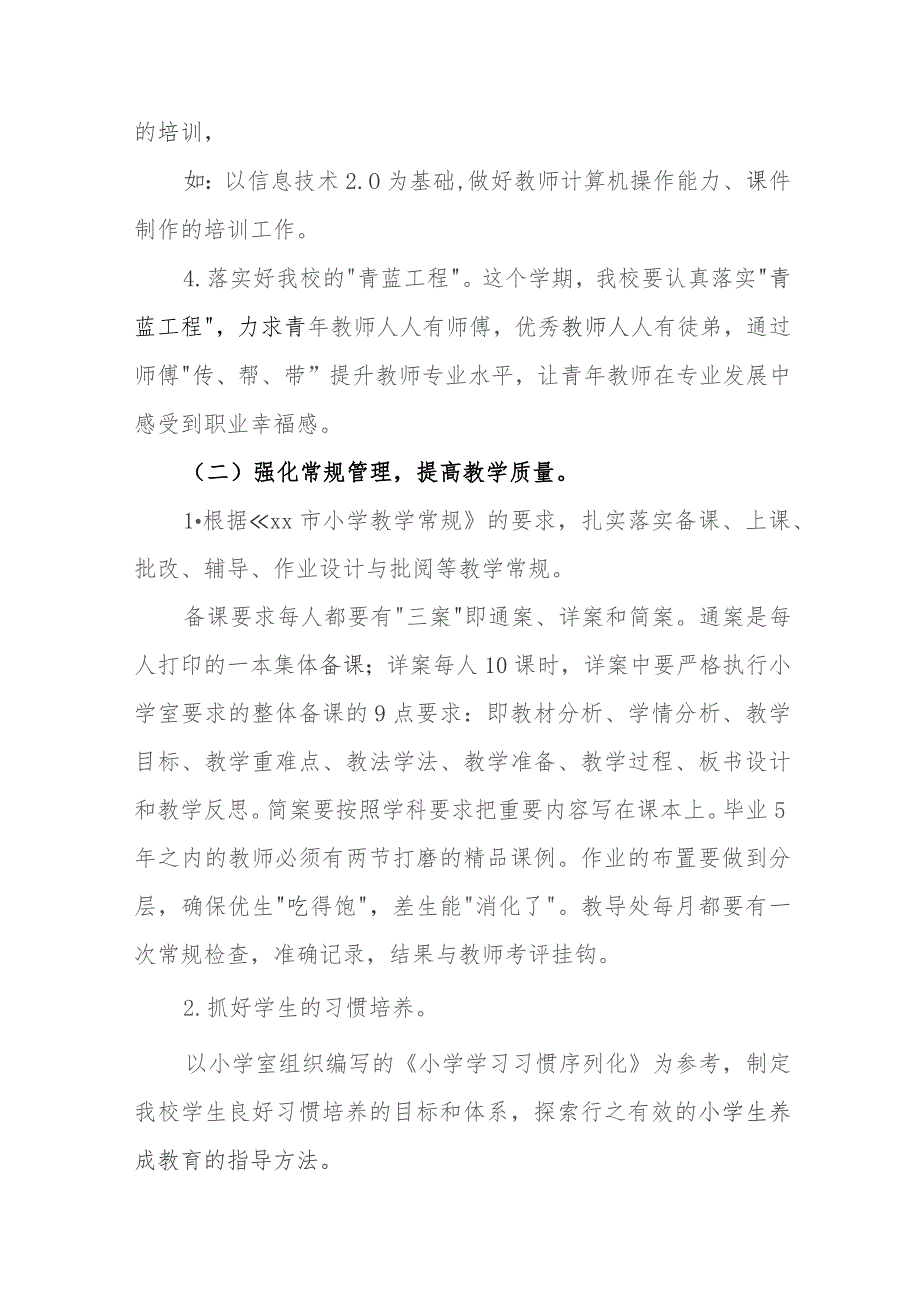 的培训，
如：以信息技术2.0为基础,做好教师计算机操作能力、课件
制作的培训工作。
4.落实好我校的"青蓝工程"。这个学期，我校要认真落实"青
蓝工程"，力求青年教师人人有师傅，优秀教师人人有徒弟，通过
师傅"传、帮、带”提升教师专业水平，让青年教师在专业发展中
感受到职业幸福感。
（二）强化常规管理，提高教学质量。
1•根据≪xx市小学教学常规》的要求，扎实落实备课、上课、
批改、辅导、作业设计与批阅等教学常规。
备课要求每人都要有"三案"即通案、详案和简案。通案是每
人打印的一本集体备课；详案每人10课时，详案中要严格执行小
学室要求的整体备课的9点要求：即教材分析、学情分析、教学
目标、教学重难点、教法学法、教学准备、教学过程、板书设计
和教学反思。简案要按照学科要求把重要内容写在课本上。毕业5
年之内的教师必须有两节打磨的精品课例。作业的布置要做到分
层，确保优生"吃得饱"，差生能"消化了"。教导处每月都要有一
次常规检查，准确记录，结果与教师考评挂钩。
2.抓好学生的习惯培养。
以小学室组织编写的《小学学习习惯序列化》为参考，制定
我校学生良好习惯培养的目标和体系，探索行之有效的小学生养
成教育的指导方法。